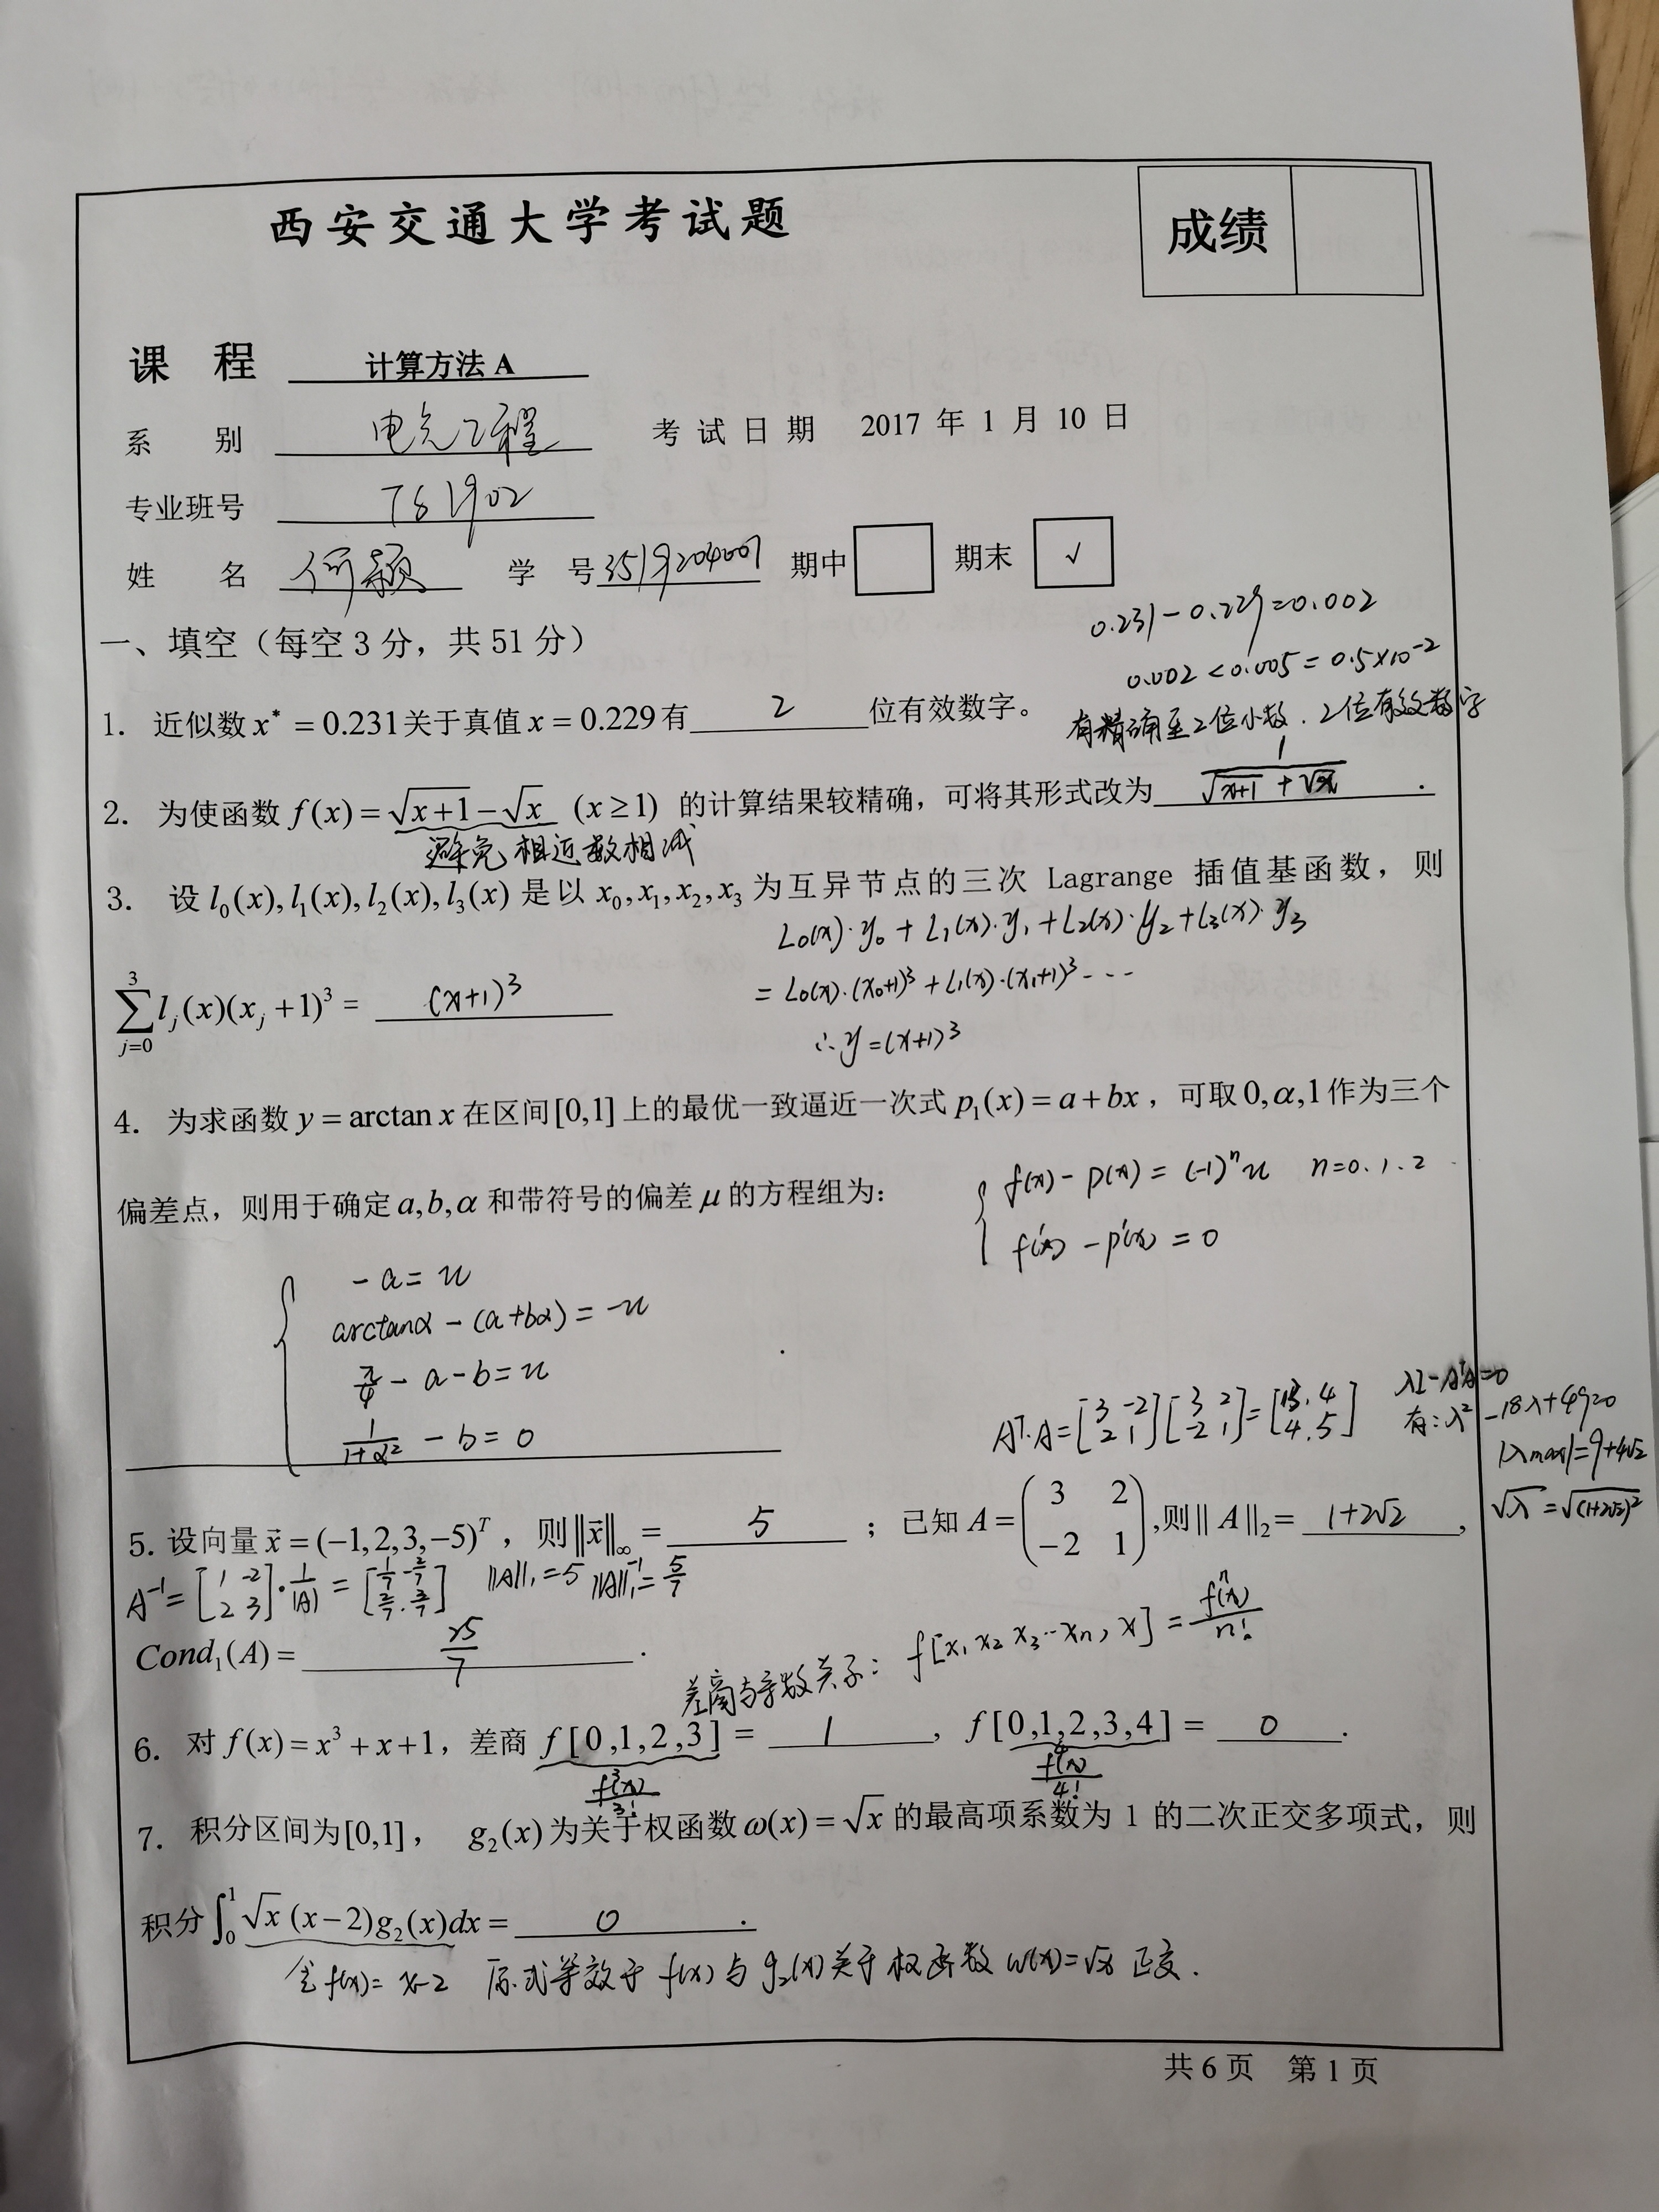 西安交通大学考试题
成绩
课 程 计算方法 A
系 别 电气工程 考试日期 2017 年 1 月 10 日
专业班号
姓 名 何颖 学 号 3519204007 期中 期末 √
一、填空（每空 3 分，共 51 分）
0.231-0.229=0.002
0.002<0.005=0.5×10⁻²
1. 近似数 x* = 0.231 关于真值 x = 0.229 有 2 位有效数字。
有精确至2位小数.2位有效数字
2. 为使函数 f(x) = √(x+1) − √x (x ≥ 1) 的计算结果较精确，可将其形式改为 1/(√(x+1) + √x) .
避免相近数相减
3. 设 l₀(x), l₁(x), l₂(x), l₃(x) 是以 x₀, x₁, x₂, x₃ 为互异节点的三次 Lagrange 插值基函数，则
L₀(x)·y₀ + L₁(x)·y₁ + L₂(x)·y₂ + L₃(x)·y₃
= L₀(x)·(x₀+1)³ + L₁(x)·(x₁+1)³ - - -
∑_{j=0}^{3} l_j(x)(x_j + 1)³ = (x+1)³
∴ y = (x+1)³
4. 为求函数 y = arctan x 在区间 [0,1] 上的最优一致逼近一次式 p₁(x) = a + bx，可取 0, α, 1 作为三个
偏差点，则用于确定 a, b, α 和带符号的偏差 μ 的方程组为：
f(x) - p(x) = (-1)ⁿu n=0.1.2
f'(x) - p'(x) = 0
-a = u
arctanα - (a+bα) = -u
π/4 - a - b = u
1/(1+α²) - b = 0
Aᵀ·A = [3 -2; 2 1][3 2; -2 1] = [13. 4; 4. 5]
λI-AᵀA=0
有: λ²-18λ+49=0
|λmax|=9+4√2
√λ = √(1+2√2)²
5. 设向量 x⃗ = (−1,2,3,−5)ᵀ，则 ‖x⃗‖∞ = 5 ；已知 A = (3 2; −2 1), 则 ‖A‖₂ = 1+2√2 ,
A⁻¹ = [1 -2; 2 3]·1/|A| = [1/7 -2/7; 2/7. 3/7] ‖A‖₁=5 ‖A‖₁⁻¹=5/7
Cond₁(A) = 25/7 .
差商与导数关系: f[x₁ x₂ x₃ ··· xₙ, x] = fⁿ(x)/n!
6. 对 f(x) = x³ + x + 1，差商 f[0,1,2,3] = 1 ，f[0,1,2,3,4] = 0 .
f³(x)/3! f⁴(x)/4!
7. 积分区间为 [0,1]， g₂(x) 为关于权函数 ω(x) = √x 的最高项系数为 1 的二次正交多项式，则
积分 ∫₀¹ √x (x−2)g₂(x)dx = 0 .
令 f(x)= x-2 原式等效于 f(x) 与 g₂(x) 关于权函数 w(x)=√x 正交.
共 6 页 第 1 页